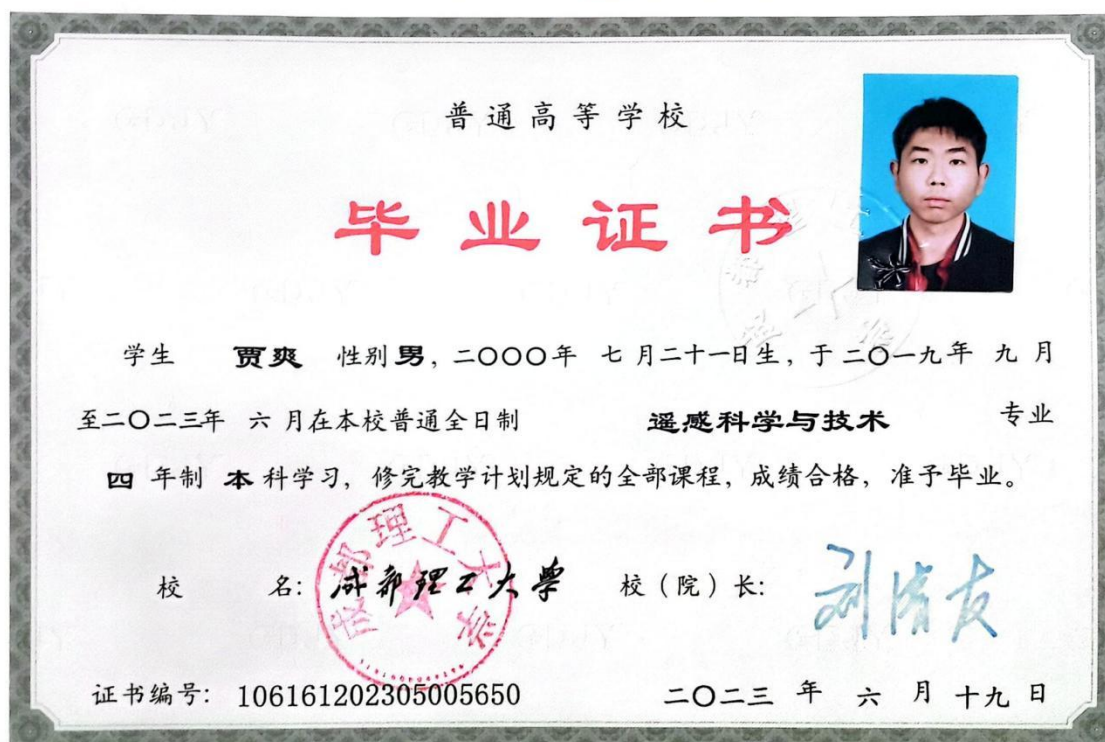 普通高等学校
毕业证书
学生 贾爽 性别男，二〇〇〇年 七月二十一日生，于二〇一九年 九月
至二〇二三年 六月在本校普通全日制 遥感科学与技术 专业
四年制 本科学习，修完教学计划规定的全部课程，成绩合格，准予毕业。
校 名：成都理工大学 校（院）长：刘清友
成都理工大学
证书编号：106161202305005650 二〇二三 年 六 月 十九 日